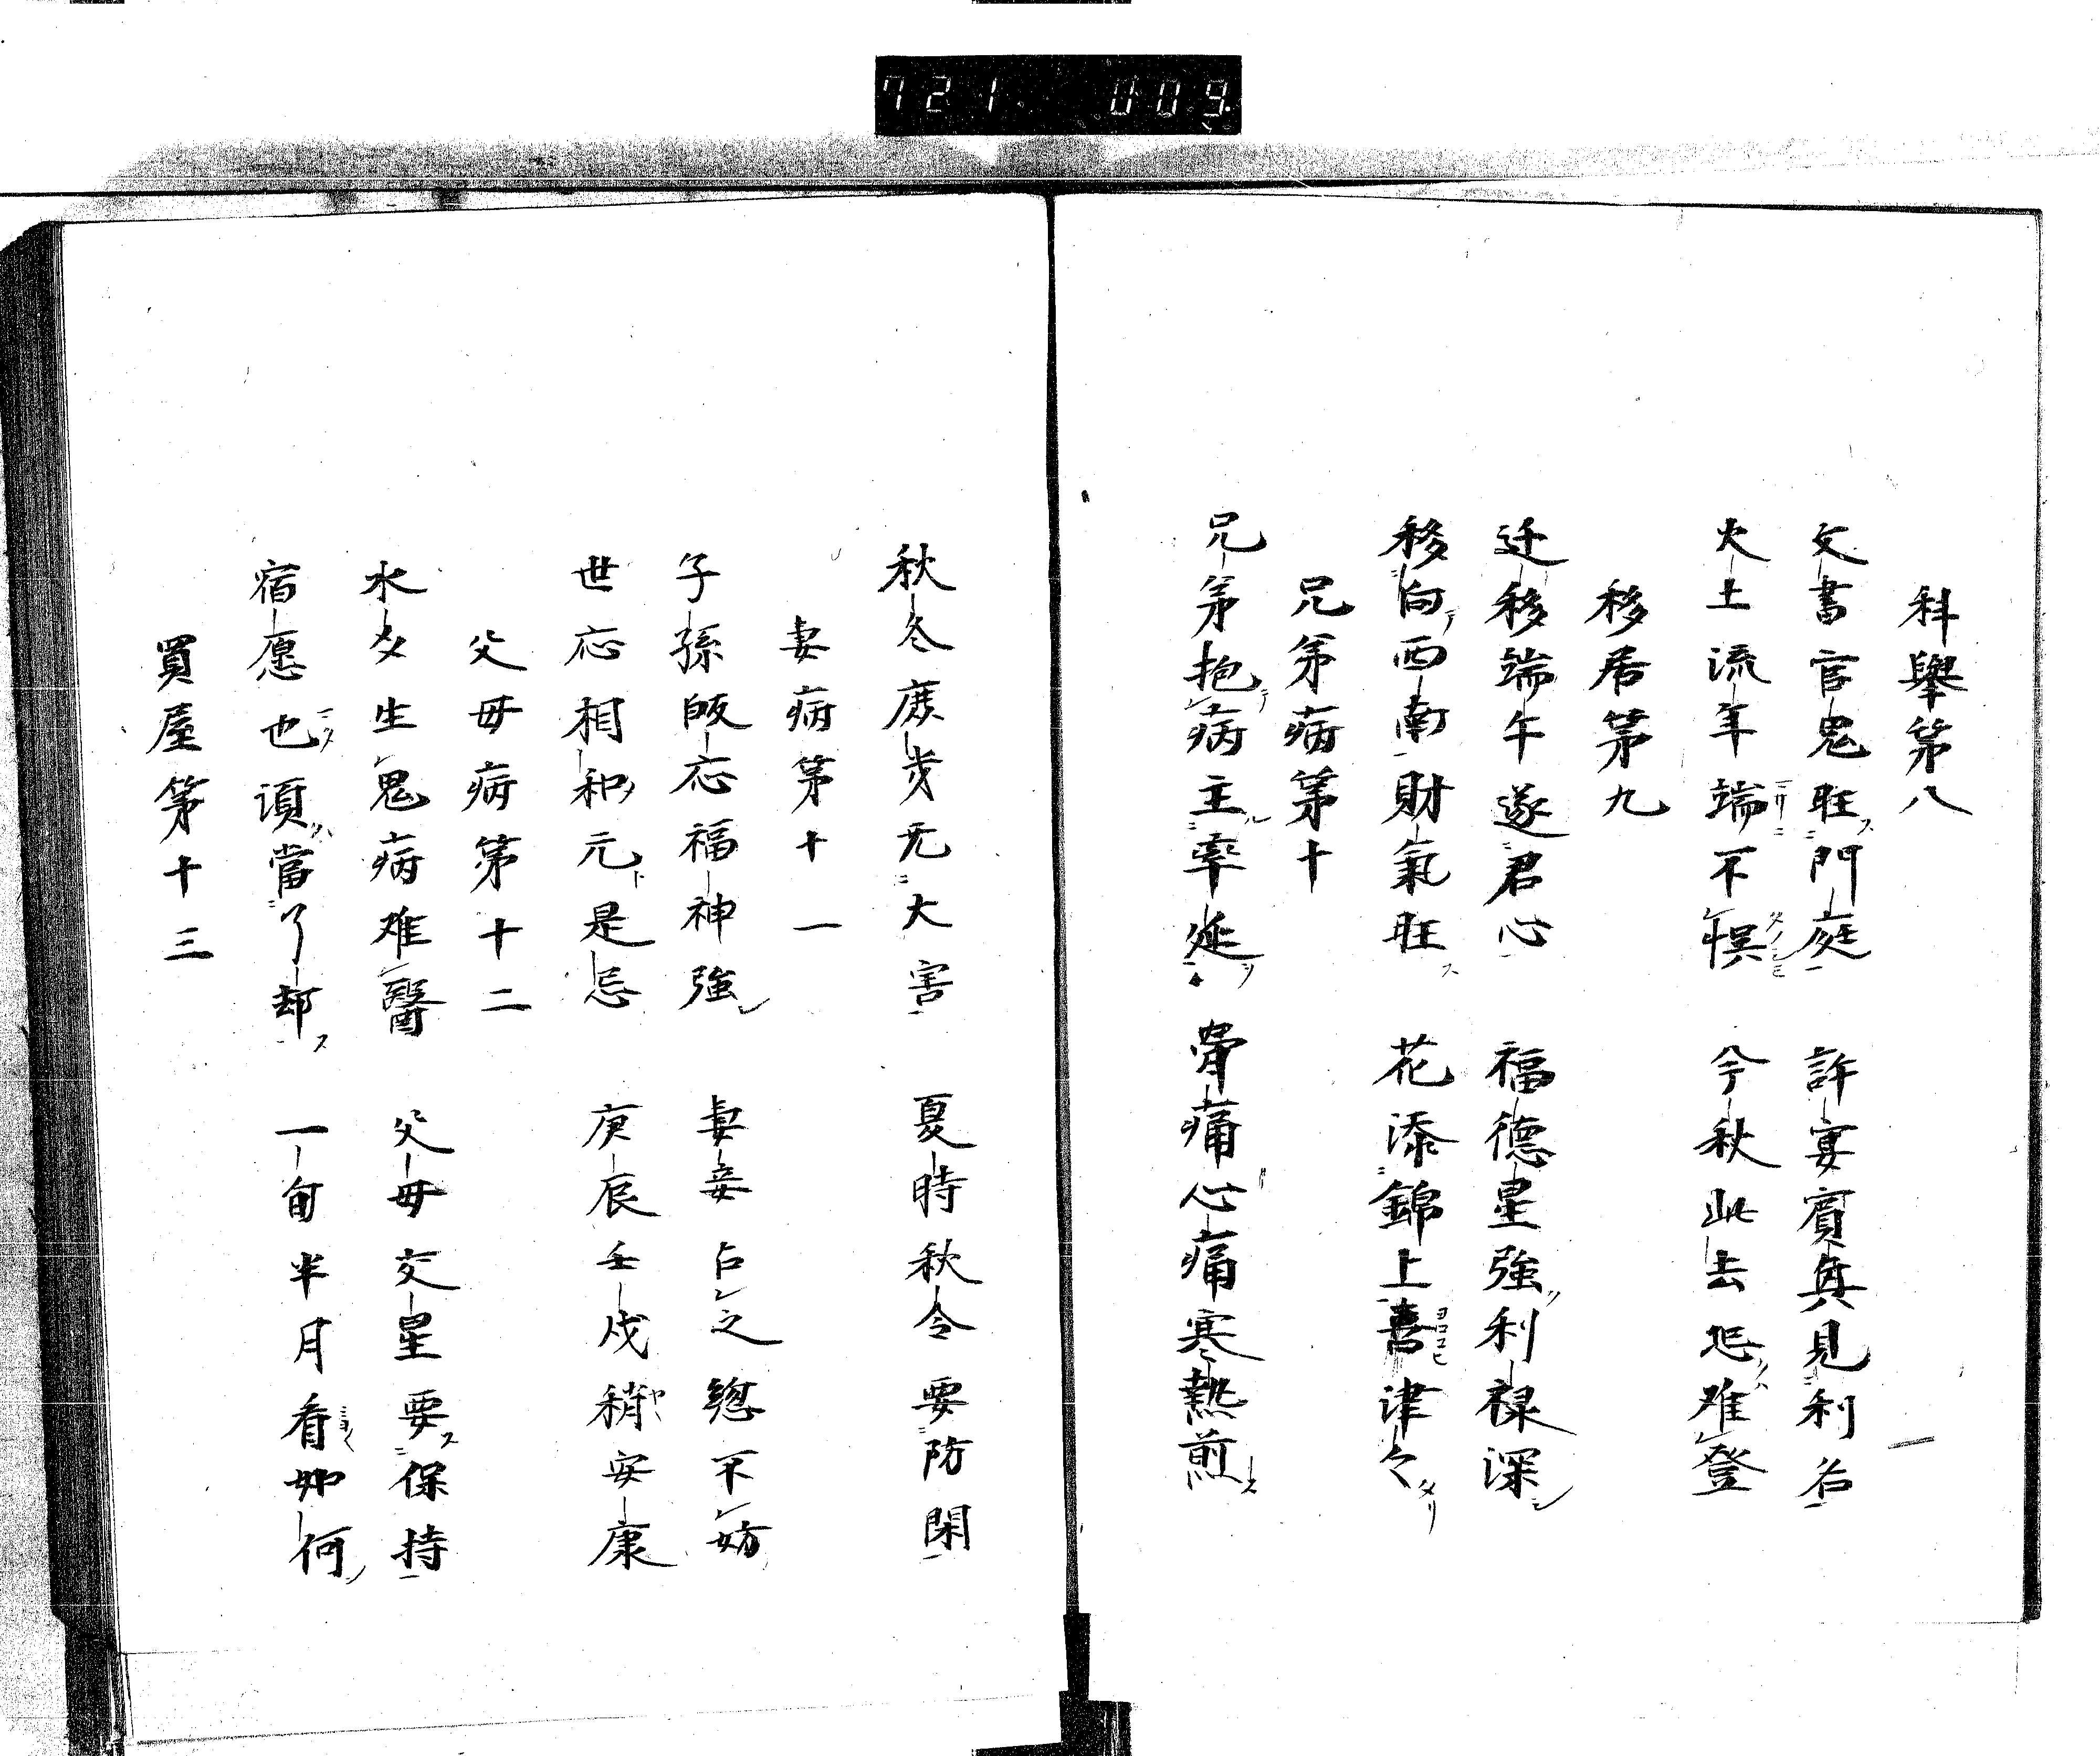 721 009
科舉第八
文書官鬼旺門庭 許宴賓興見利名
火土流年端不悮 今秋此去恐难登
移居第九
迁移端午遂君心 福德星強利禄深
移向西南財氣旺 花添錦上喜津々
兄第病第十
兄第抱病主牽延 骨痛心痛寒熱煎
秋冬庶步无大害 夏時秋令要防閑
妻病第十一
子孫皈応福神強 妻妾占之緫不妨
世応相和元是忌 庚辰壬戌稍安康
父母病第十二
水爻生鬼病难醫 父母交星要保持
宿愿也須當了却 一旬半月看如何
買屋第十三